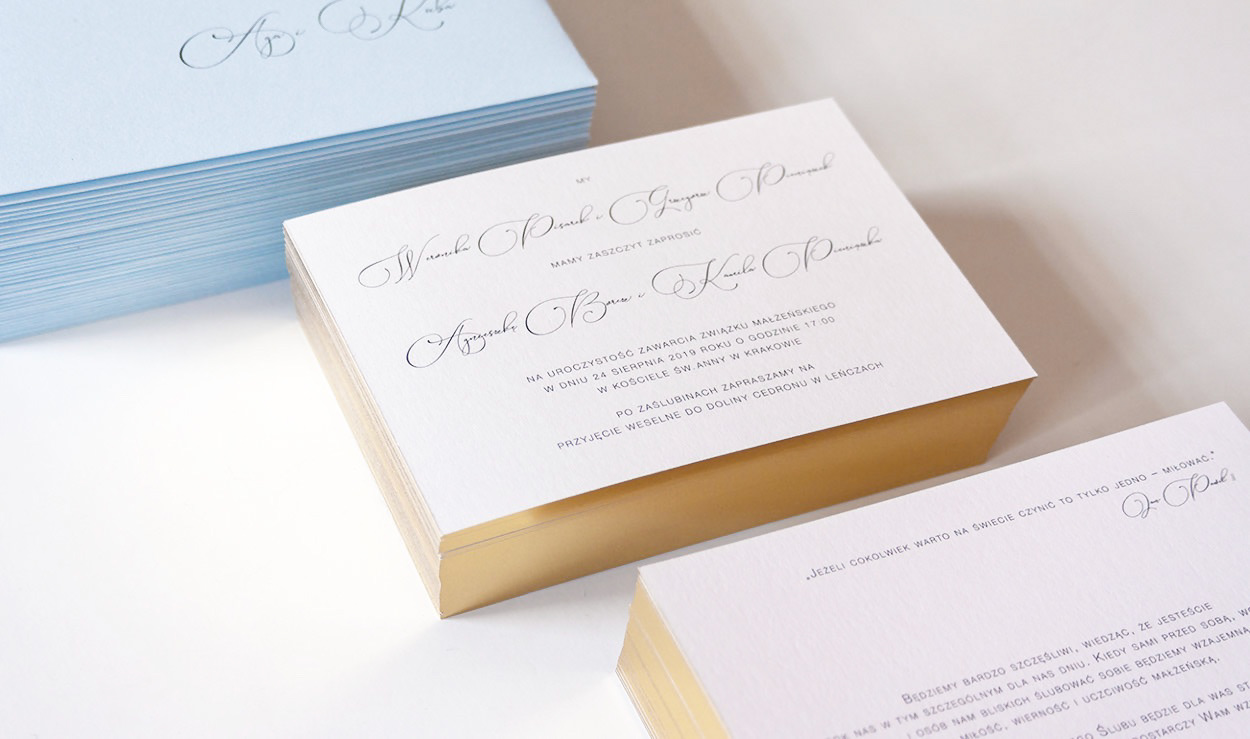 Aga i Kuba
MY
Weronika Pisarek i Grzegorz Pieniążek
MAMY ZASZCZYT ZAPROSIĆ
Agnieszkę Borcz i Kamila Pieniążka
NA UROCZYSTOŚĆ ZAWARCIA ZWIĄZKU MAŁŻEŃSKIEGO
W DNIU 24 SIERPNIA 2019 ROKU O GODZINIE 17:00
W KOŚCIELE ŚW.ANNY W KRAKOWIE
PO ZAŚLUBINACH ZAPRASZAMY NA
PRZYJĘCIE WESELNE DO DOLINY CEDRONU W LEŃCZACH
„JEŻELI COKOLWIEK WARTO NA ŚWIECIE CZYNIĆ TO TYLKO JEDNO – MIŁOWAĆ."
Jan Paweł II
BĘDZIEMY BARDZO SZCZĘŚLIWI, WIEDZĄC, ŻE JESTEŚCIE
NAS W TYM SZCZEGÓLNYM DLA NAS DNIU. KIEDY SAMI PRZED SOBĄ,
I OSÓB NAM BLISKICH ŚLUBOWAĆ SOBIE BĘDZIEMY WZAJEMNĄ
MIŁOŚĆ, WIERNOŚĆ I UCZCIWOŚĆ MAŁŻEŃSKĄ.
ŚLUBU BĘDZIE DLA WAS
DOSTARCZY WAM